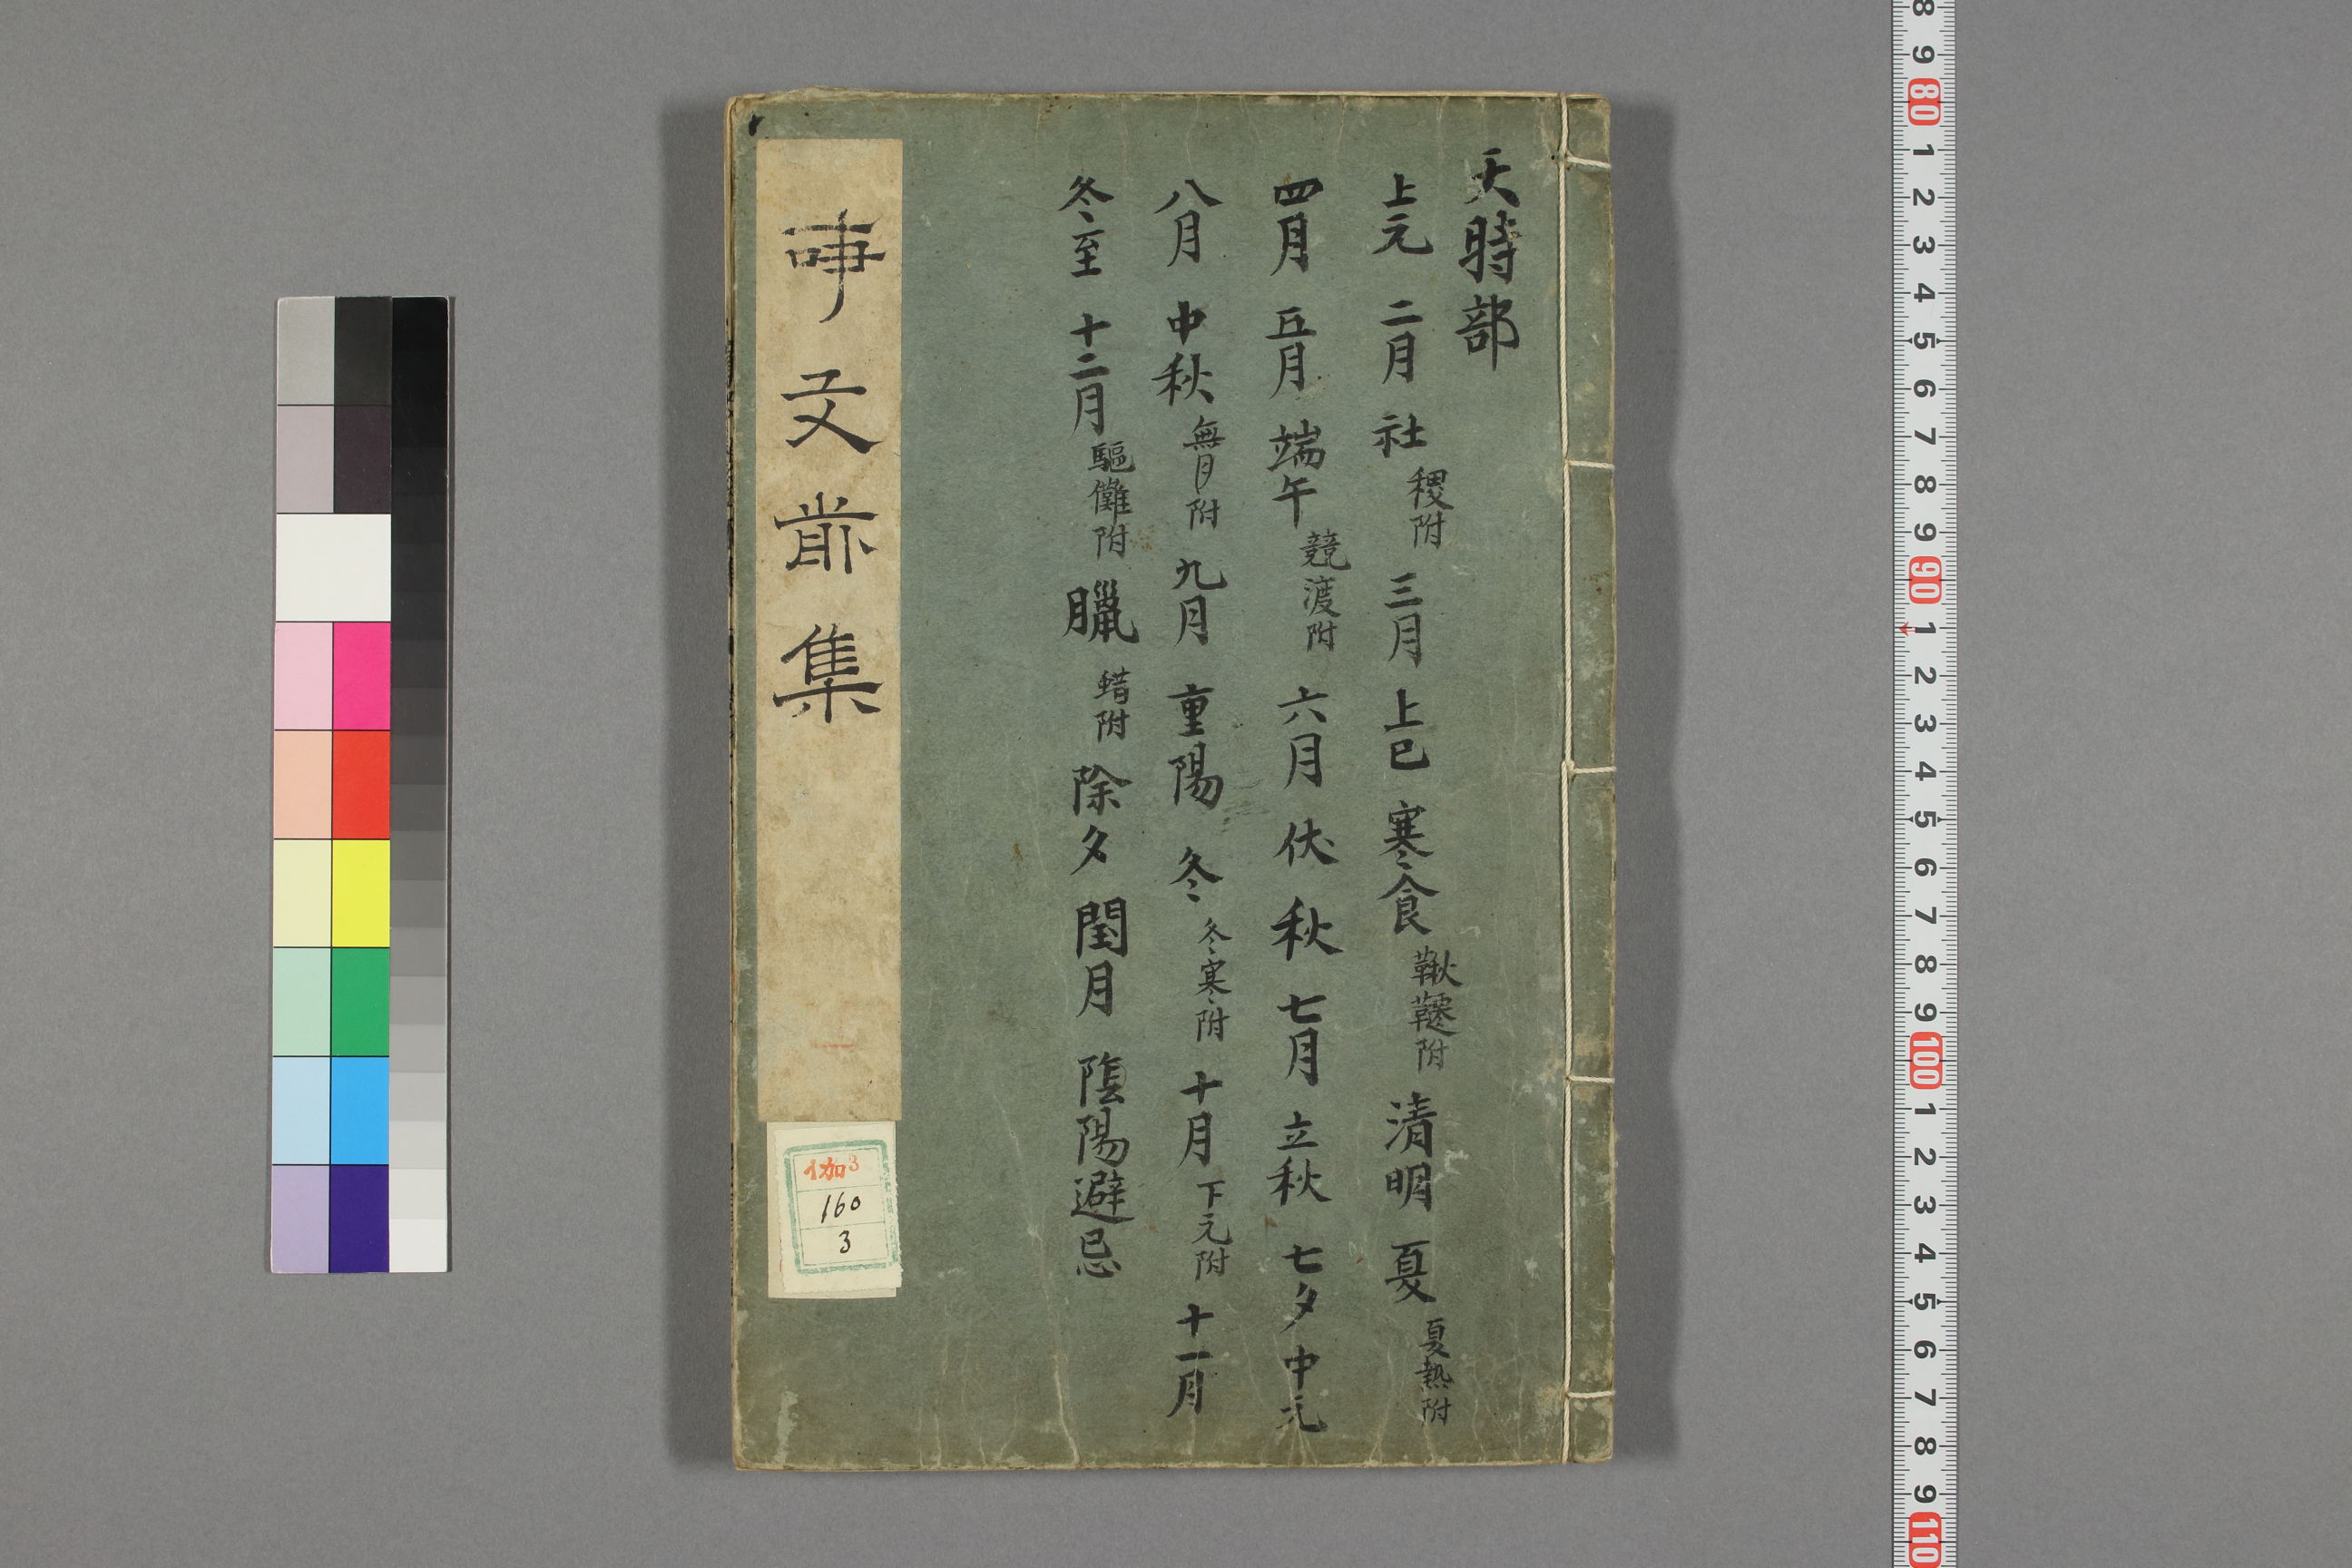 天時部
上元 二月 社 稷附 三月 上巳 寒食 鞦韆附 清明 夏 夏熱附
四月 五月 端午 競渡附 六月 伏 秋 七月 立秋 七夕 中元
八月 中秋 無月附 九月 重陽 冬 冬寒附 十月 下元附 十一月
冬至 十二月 驅儺附 臘 蜡附 除夕 閏月 陰陽避忌
事文前集
伽3
160
3
8 9 80 1 2 3 4 5 6 7 8 9 90 1 2 3 4 5 6 7 8 9 100 1 2 3 4 5 6 7 8 9 110